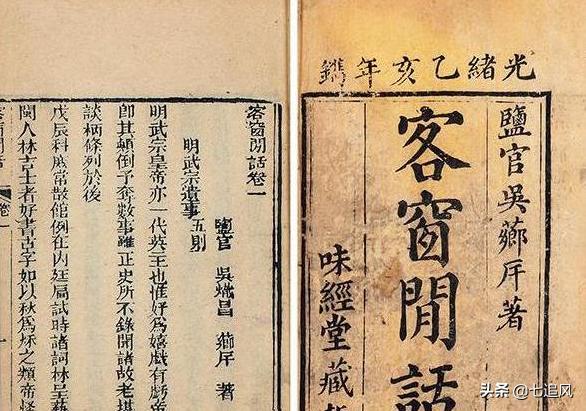 光緒乙亥年鐫
鹽官吳薌厈著
客窗閒話
味經堂藏
客窗閒話卷一
鹽官 吳熾昌 薌厈 著
明武宗遺事 五則
明武宗皇帝亦一代英主也惟好為嬉戲有戲
即其顛倒予奪數事雖正史所不錄聞諸故老堪
談柄條列於後
戊辰科庶常散館例在內廷扃試時諸詞林呈藝
閩人林吉士者好書古字如以秋為秌之類帝怪
卷一
头条 @七追风